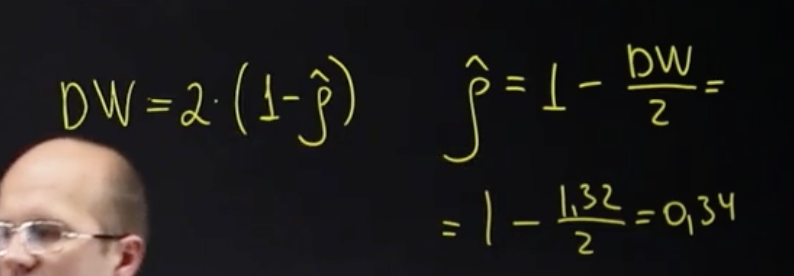 DW = 2·(1-ρ̂)
ρ̂ = 1 - DW/2 =
= 1 - 1,32/2 = 0,34